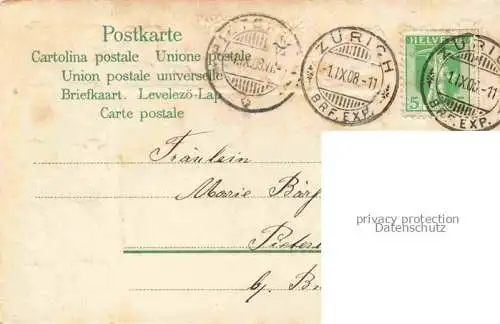 Postkarte
Cartolina postale Unione postale
Union postale universelle
Briefkaart. Levelező-Lap
Carte postale
ZÜRICH
-1.IX.08.-11
BRF. EXP.
HELVE
5
ZÜRICH
-1.IX.08.-11
BRF. EXP.
Fräulein
Marie
privacy protection
Datenschutz
Pieter
b/. B